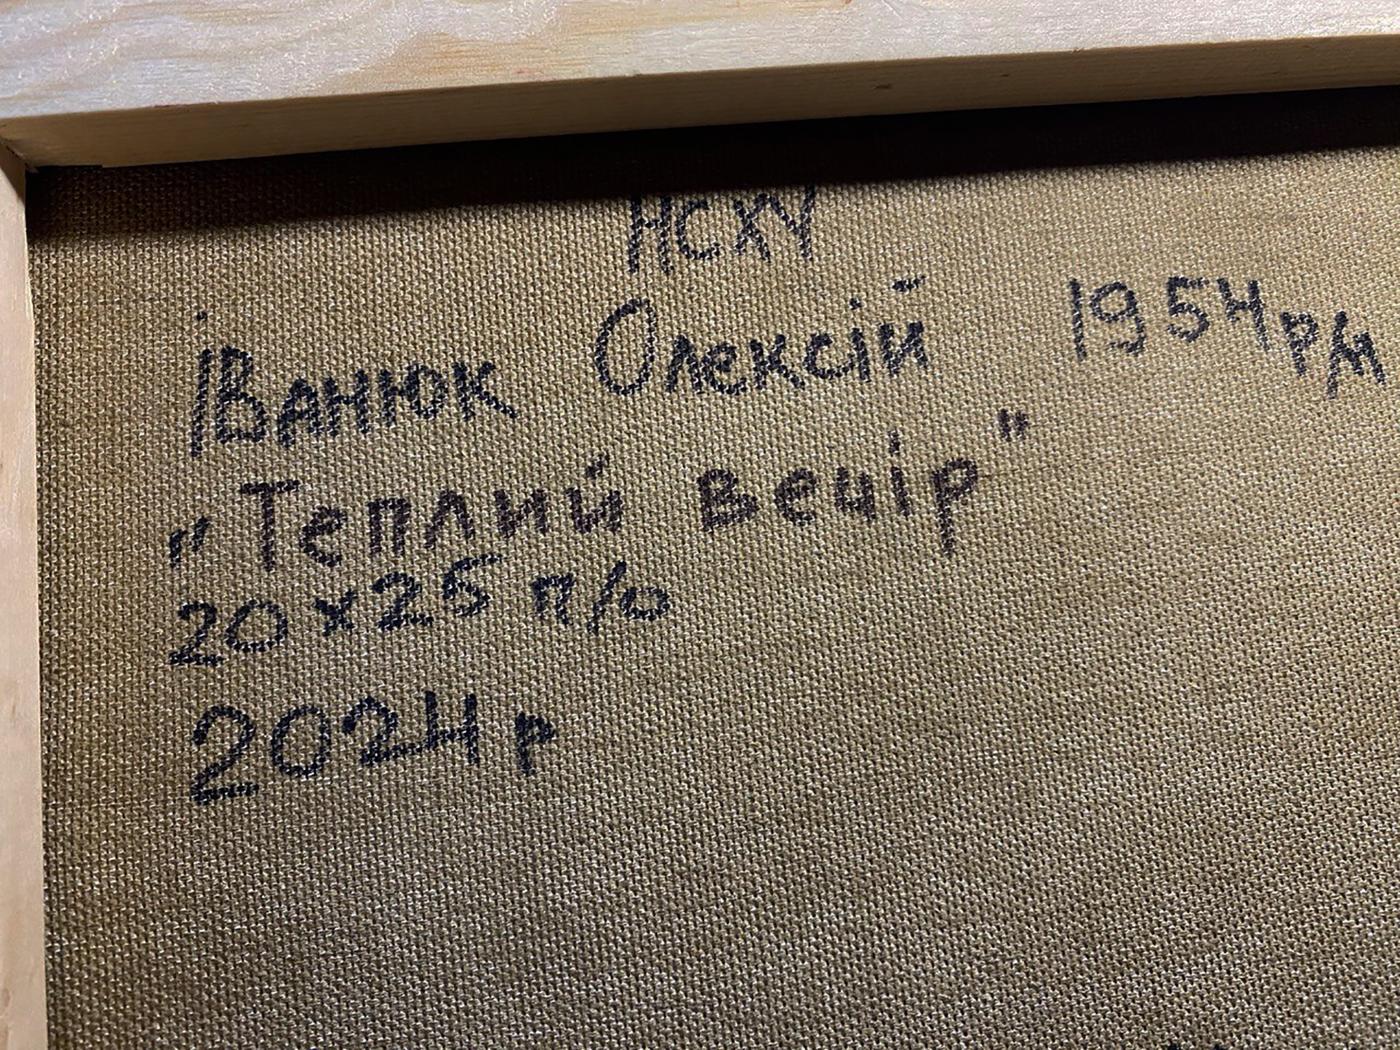 НСХУ
Іванюк Олексій 1954 р/н
"Теплий вечір"
20х25 п/о
2024 р